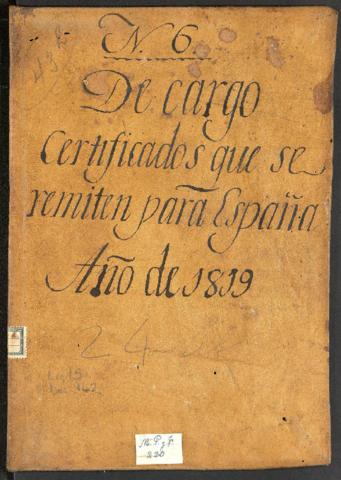 N. 6.
De cargo
Certificados que se
remiten para España
Año de 1819
24
M.P. y F.
220